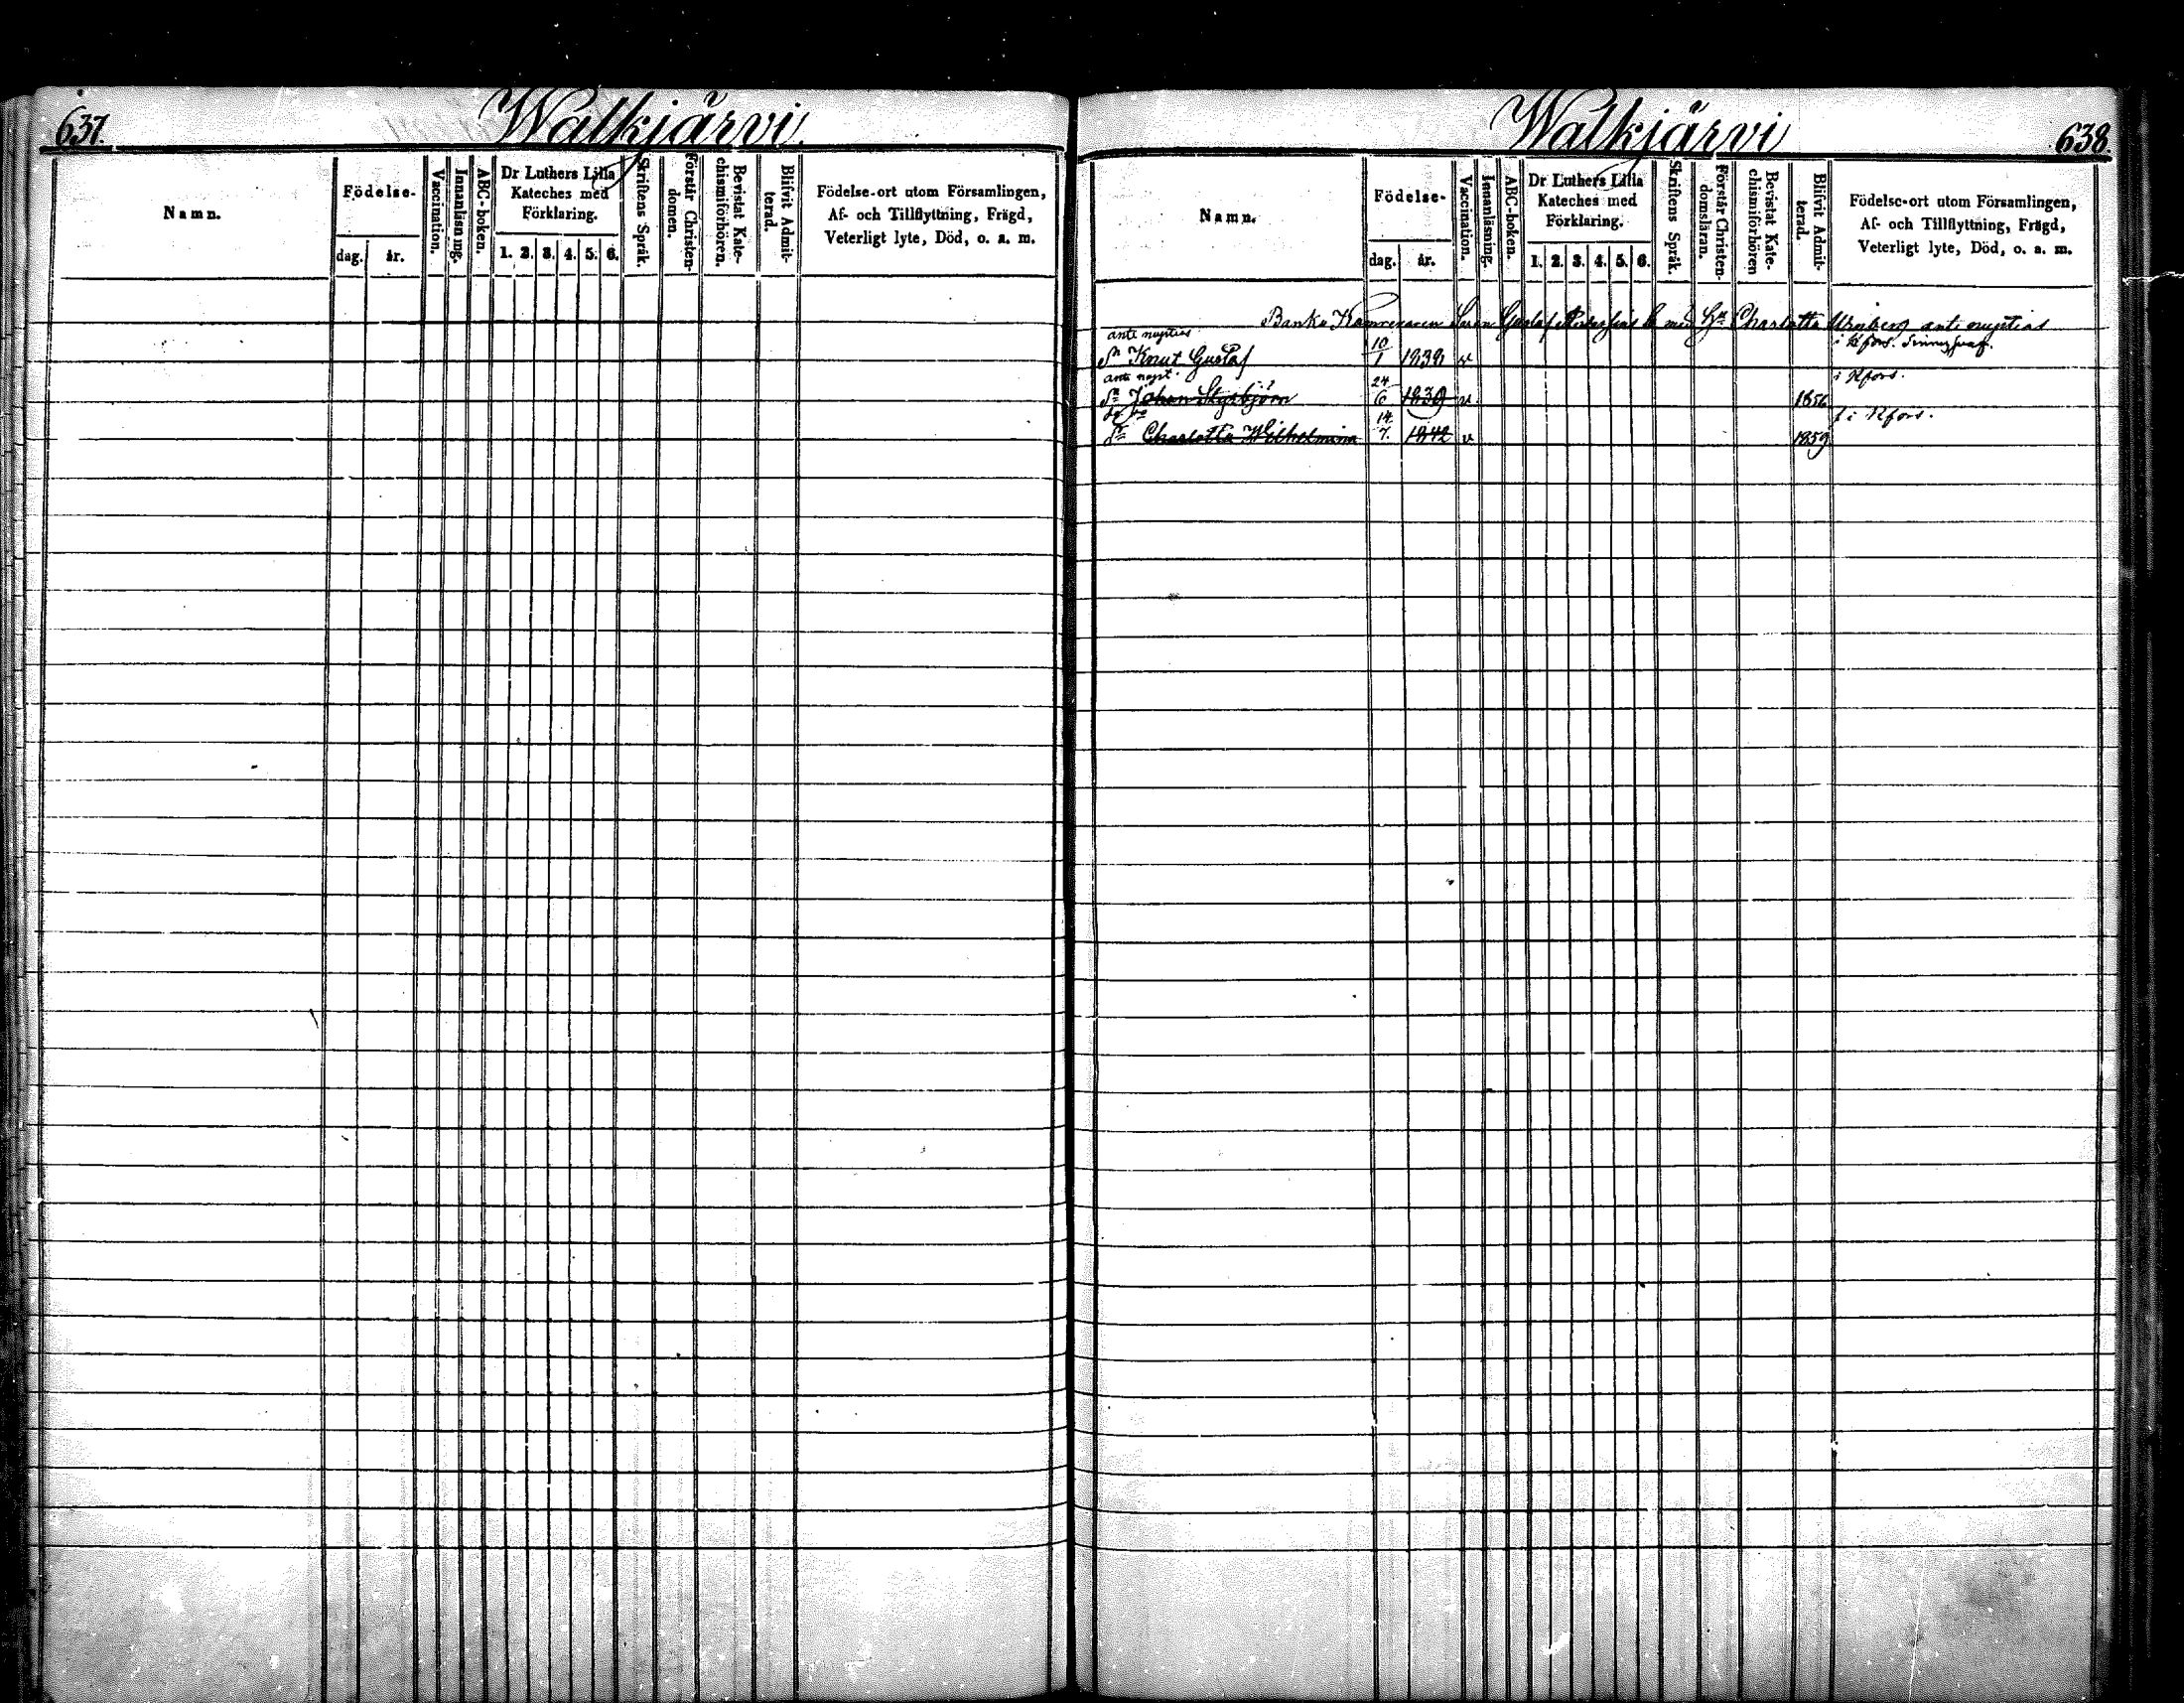 637.
Walkjärvi.
Namn.
Födelse-
dag.
år.
Vaccination.
Innanläsning.
ABC-boken.
Dr Luthers Lilla
Kateches med
Förklaring.
1. 2. 3. 4. 5. 6.
Skriftens Språk.
Förstår Christen-
domen.
Bevistat Kate-
chismiförhören.
Blifvit Admit-
terad.
Födelse-ort utom Församlingen,
Af- och Tillflyttning, Frägd,
Veterligt lyte, Död, o. a. m.
Walkjärvi
638.
Namn.
Födelse-
dag.
år.
Vaccination.
Innanläsning.
ABC-boken.
Dr Luthers Lilla
Kateches med
Förklaring.
1. 2. 3. 4. 5. 6.
Skriftens Språk.
Förstår Christen-
domsläran.
Bevistat Kate-
chismiförhören
Blifvit Admit-
terad.
Födelse-ort utom Församlingen,
Af- och Tillflyttning, Frägd,
Veterligt lyte, Död, o. a. m.
Banko Kamreraren Gustaf med Charlotta ante nuptias
ante nuptias
Sn Knut Gustaf 10/1 1838 v i Hfors.
ante nupt.
Sn Johan Styrbjörn 24/6 1839 v 1856 i Hfors.
Dr Charlotta Wilhelmina 14/7. 1842 v 1859 f i Hfors.